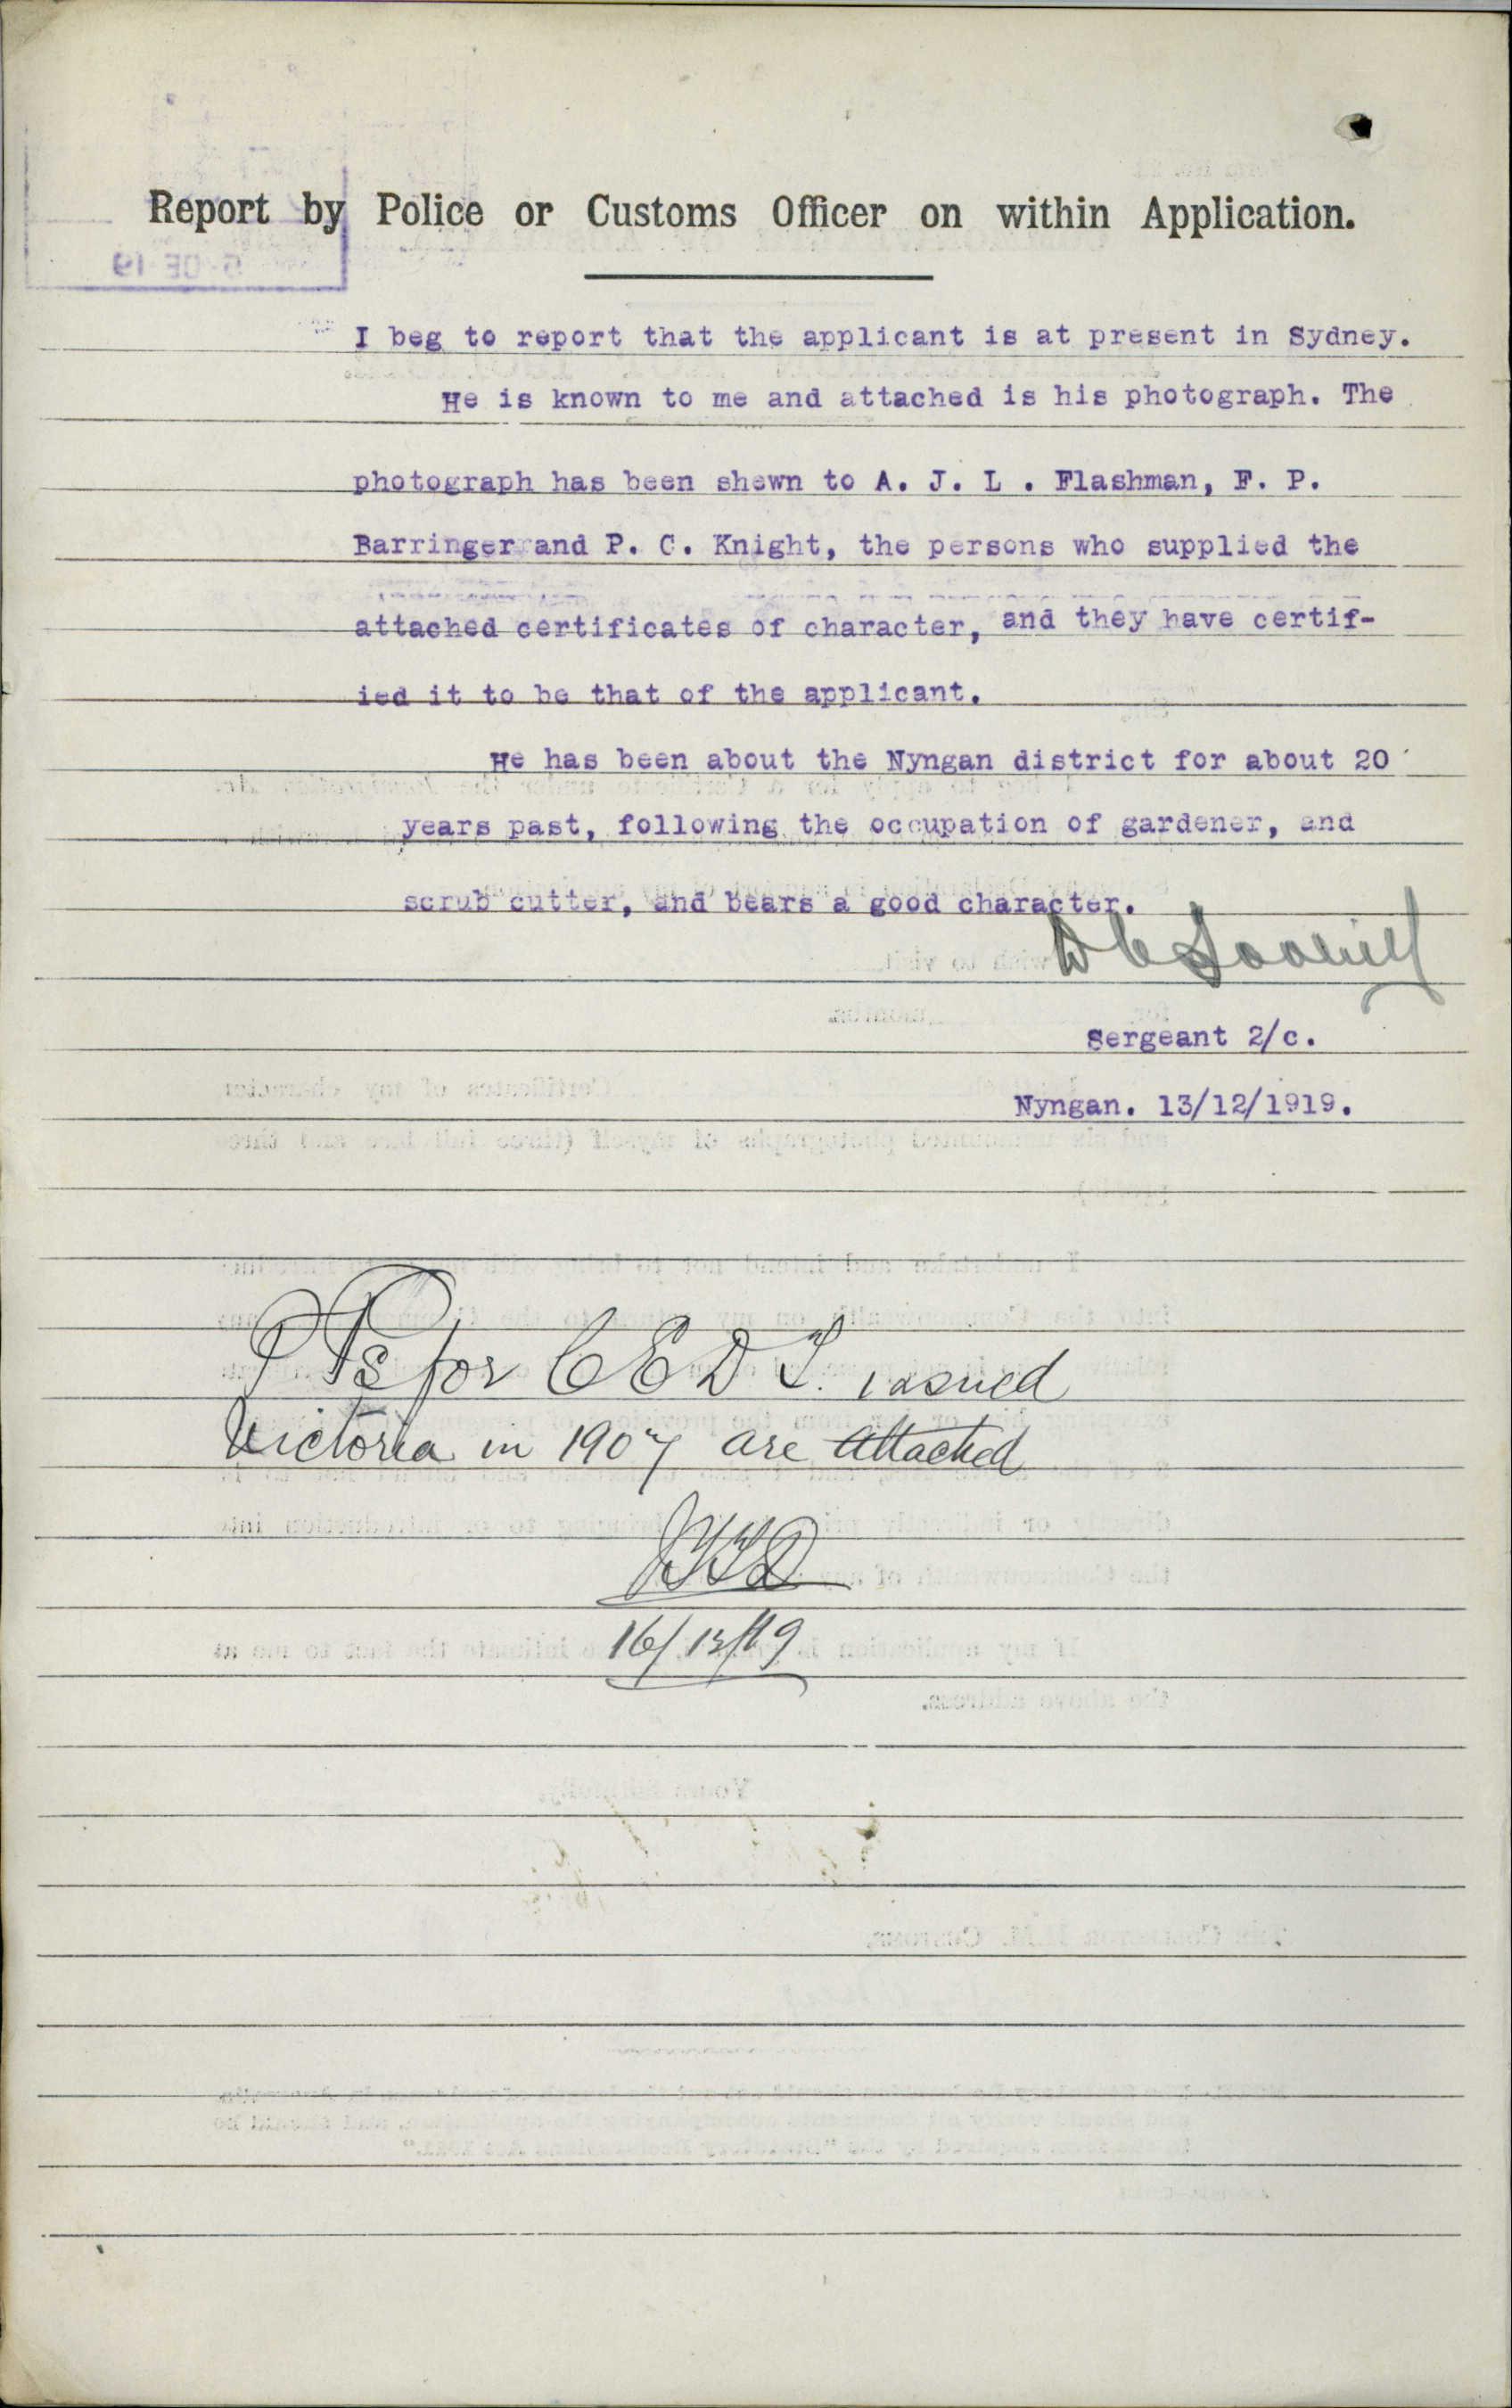 Report by Police or Customs Officer on within Application.
I beg to report that the applicant is at present in Sydney.
He is known to me and attached is his photograph. The
photograph has been shewn to A. J. L . Flashman, F. P.
Barringer and P. C. Knight, the persons who supplied the
attached certificates of character, and they have certif-
ied it to be that of the applicant.
He has been about the Nyngan district for about 20
years past, following the occupation of gardener, and
scrub cutter, and bears a good character.
Sergeant 2/c.
Nyngan. 13/12/1919.
for CEDT. issued
Victoria in 1907 are attached
16/12/19